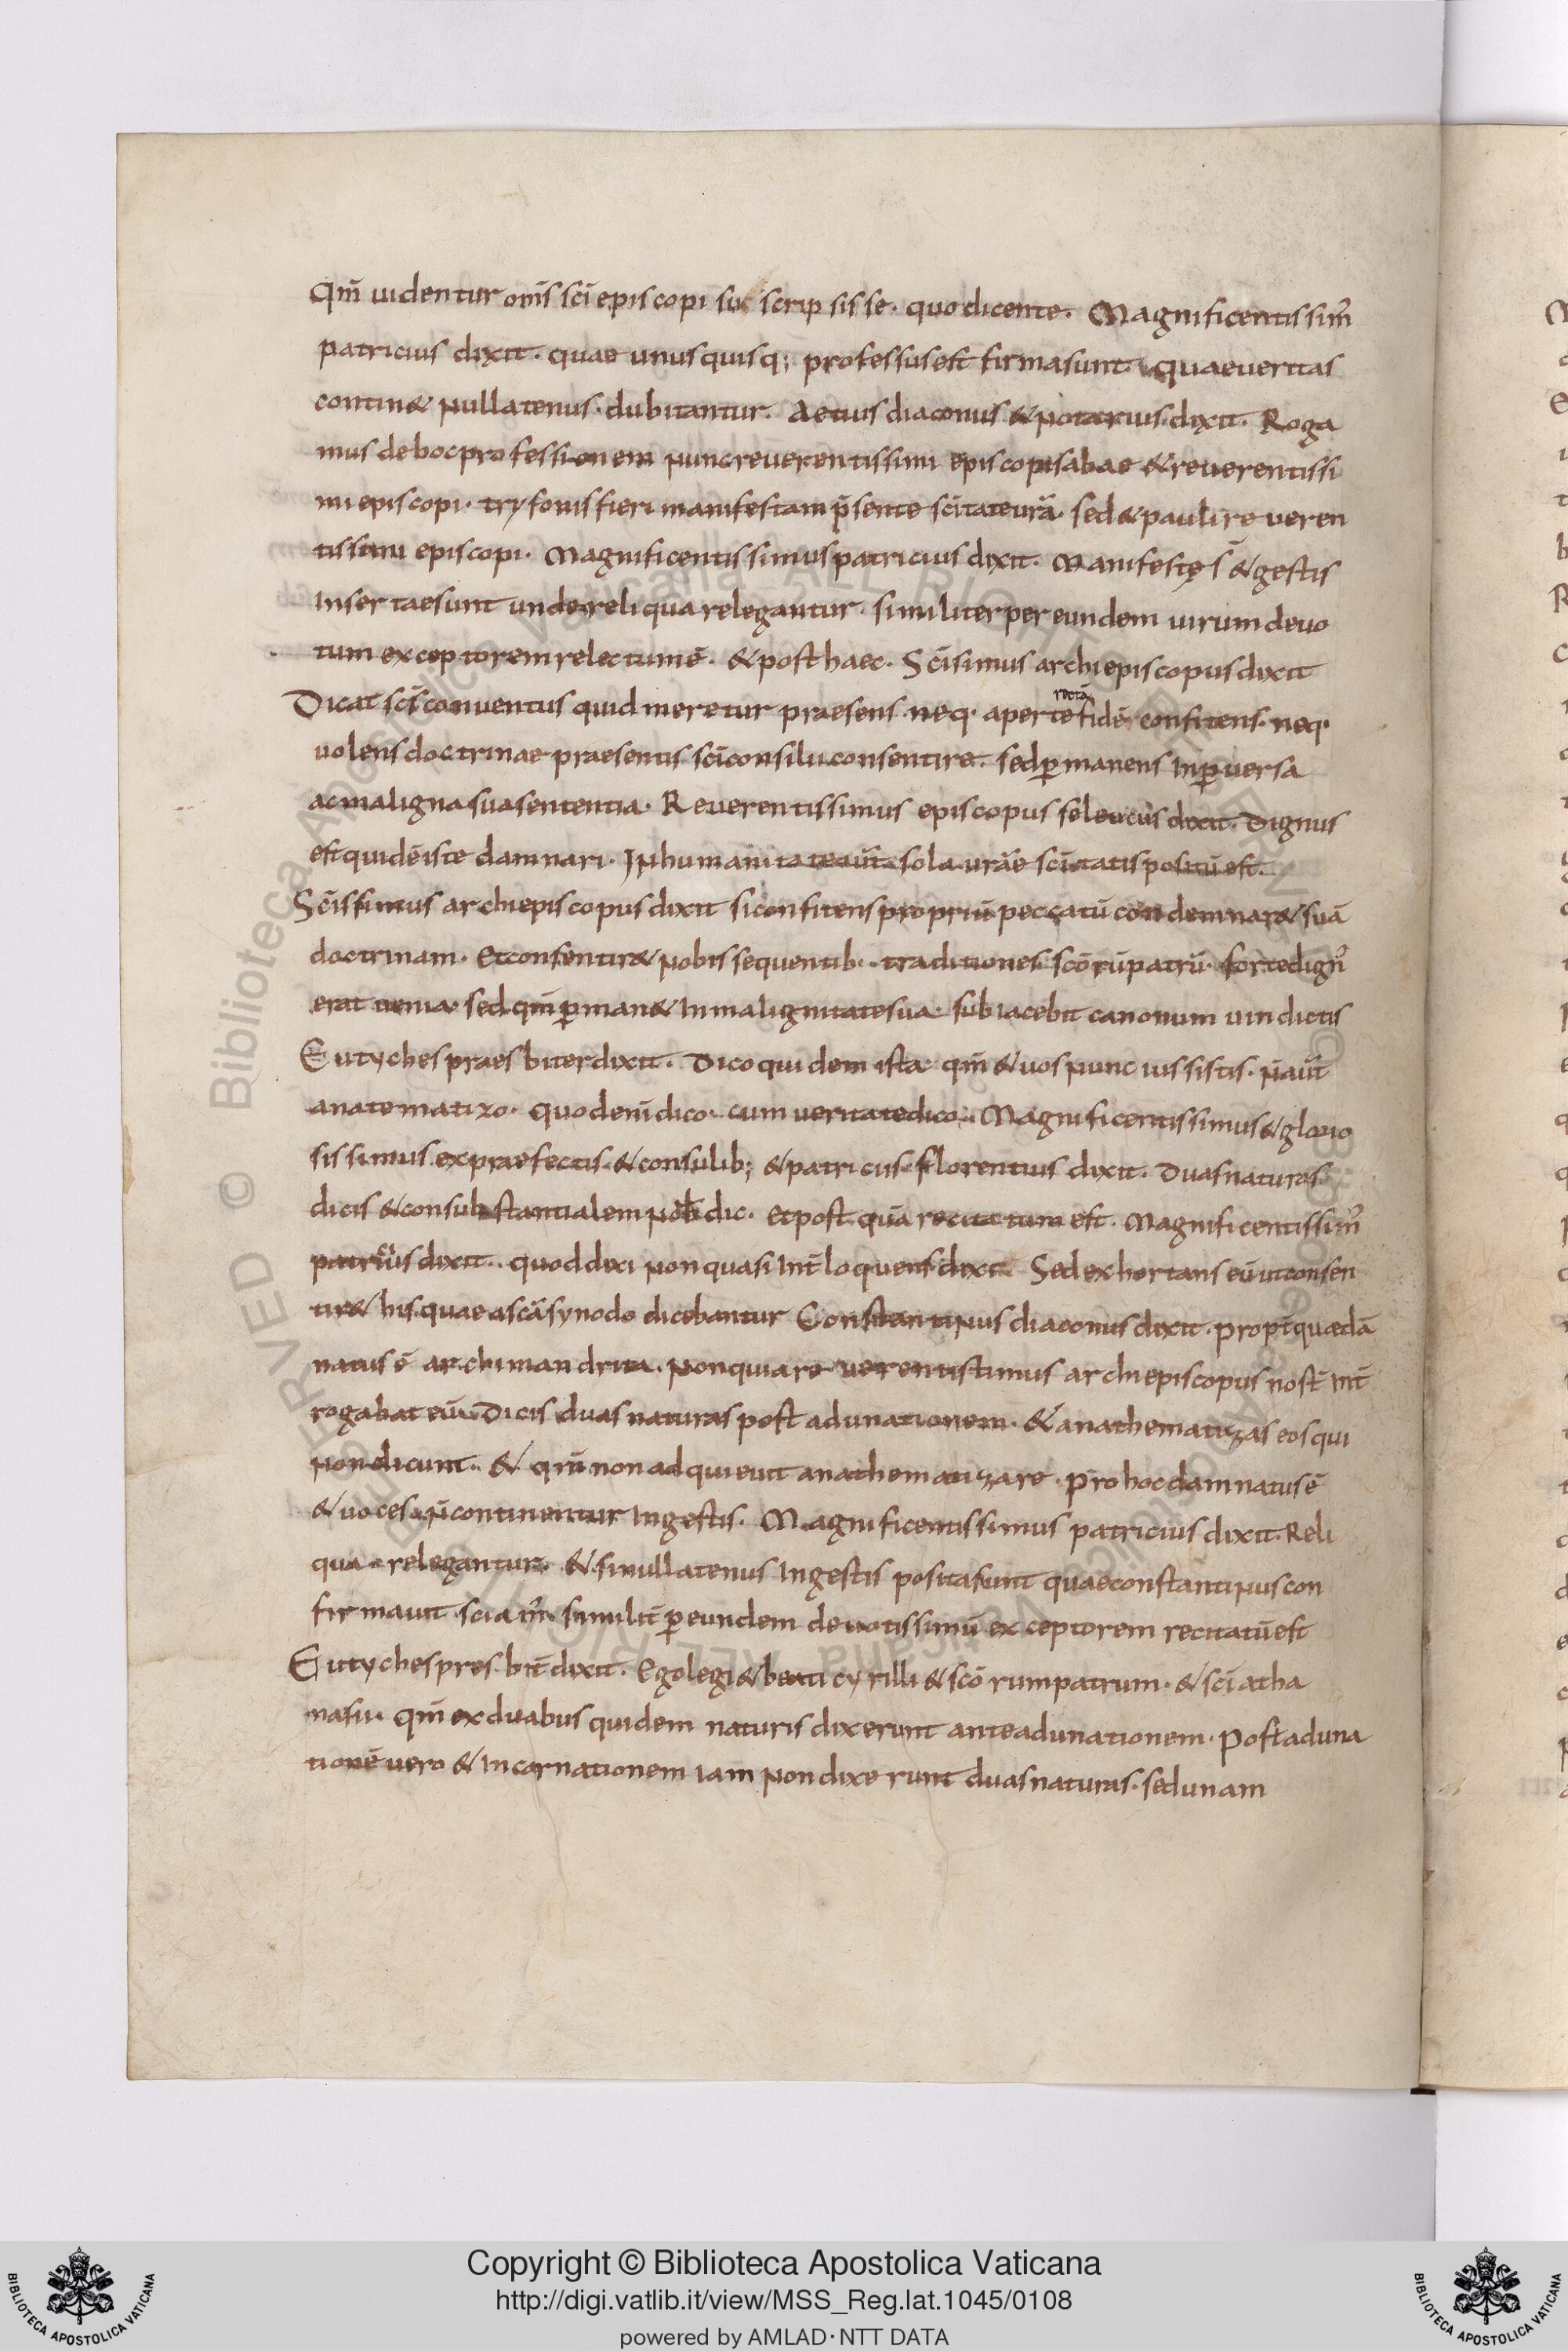 Qm̄ uidentur om̄s sc̄i episcopi suscripsisse· quo dicente· Magnificentissim᾽
patricius dixit· quae unusquisq; professus est firma sunt· quae ueritas
contin& nullatenus· dubitantur· Aetius diaconus & notarius· dixit· Roga
mus de hoc professionem nunc reuerentissimi episcopi sabae & reuerentissi
mi episcopi· tryfonis fieri manifestam p̄sente sc̄itate ur̄a· sed & pauli reueren
tissimi episcopi· Magnificentissimus patricius dixit· Manifestę s̄ & gestis
Insertae sunt unde reliqua relegantur· similiter per eundem uirum deuo
tum exceptorem relectum ē· & post haec· Sc̄isimus archiepiscopus dixit
rectā
Dicat sc̄s conuentus quid meretur praesens neq· aperte fidē confitens· neq·
uolens doctrinae praesentis sc̄i consilii consentire· sed ꝑmanens In ꝑuersa
ac maligna sua sententia· Reuerentissimus episcopus seleucus dixit· Dignus
est quidē iste damnari· In humanitate aūt sola ur̄ae sc̄itatis positū est·
Sc̄issimus archiepiscopus dixit si confitens propriū peccatū condemnar& suā
doctrinam· Et consentir& nobis sequentib· traditiones sc̄orū patrū· forte dign᾽
erat uenia· sed qm̄ ꝑman& In malignitate sua· subiacebit canonum uindictis
Eutyches praesbiter dixit· Dico quidem ista qm̄ & uos nunc iussistis· n̄ aūt
anatematizo· quod enī dico· cum ueritate dico· Magnificentissimus & glorio
sissimus ex praefectis· & consulib; & patricius· florentius dixit· Duas naturas
dicis & consubstantialem nob dic· Et post quā recitatum est· Magnificentissim᾽
patricius dixit· quod dixi non quasi Int̄loquens dixi Sed exhortans eū ut consen
tir& his quae a sc̄a synodo dicebantur Constantinus diaconus dixit· propt̄ quę dā
natus ē archimandrita· non quia reuerentissimus archiepiscopus nost̄ Int̄
rogabat eū· Dicis duas naturas post adunationem· & anathematizas eos qui
non dicunt· & qm̄ non adquieuit anathematizare· pro hoc damnatus ē
& uoces n̄ continentur In gestis· Magnificentissimus patricius dixit· Reli
qua relegantur· & si nullatenus In gestis posita sunt quae constantinus con
firmauit sciam᾽· similit̄ ꝑ eundem deuotissimū exceptorem recitatū est
Eutyches presbit̄ dixit· Ego legi & beati cyrilli & sc̄orum patrum· & sc̄i atha
nasii· qm̄ ex duabus quidem naturis dixerunt ante adunationem· Post aduna
tionē uero & Incarnationem iam non dixerunt duas naturas· sed unam
Copyright © Biblioteca Apostolica Vaticana
http://digi.vatlib.it/view/MSS_Reg.lat.1045/0108
powered by AMLAD·NTT DATA